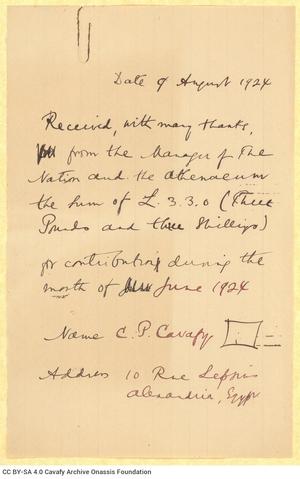 Date 9 August 1924
Received, with many thanks,
from the Manager of The
Nation and the Athenaeum
the sum of £. 3. 3. 0 (Three
Pounds and three shillings)
for contributions during the
month of June 1924
Name C. P. Cavafy
Address 10 Rue Lepsius
Alexandria, Egypt
CC BY-SA 4.0 Cavafy Archive Onassis Foundation